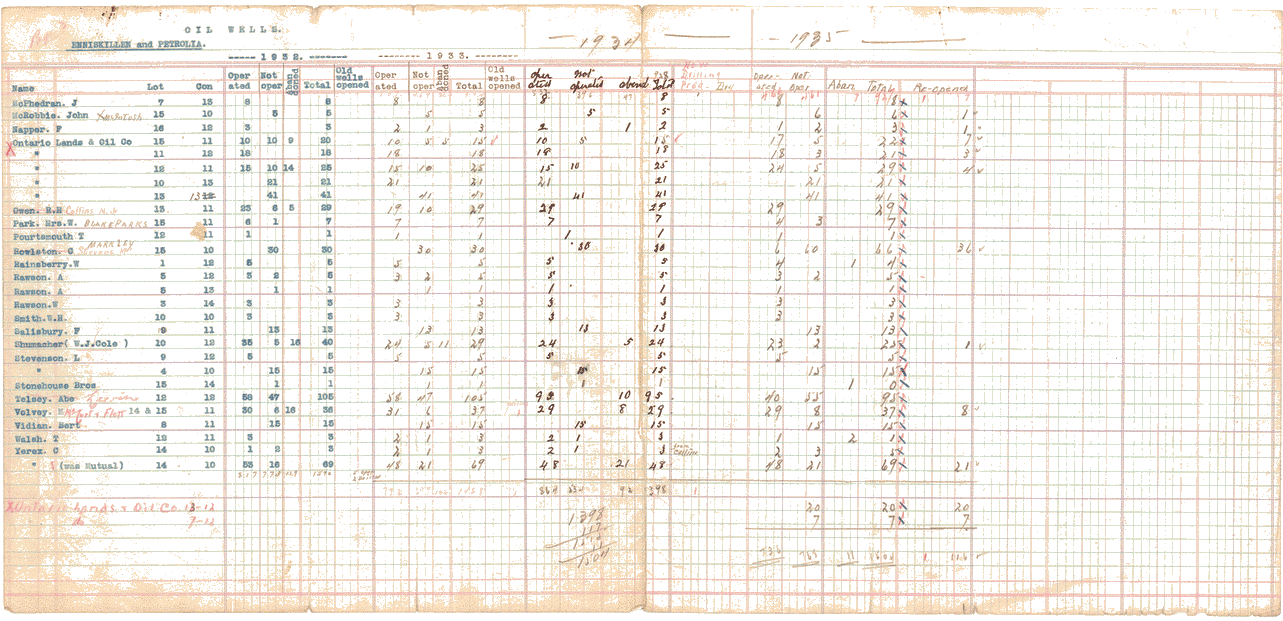 OIL WELLS.
ENNISKILLEN and PETROLIA.
1934 1935
-----1932.------- --------1933.--------
Name Lot Con Oper ated Not oper Aban doned Total Old wells opened Oper ated Not oper Aban doned Total Old wells opened oper ated not operated aband Total Drilling Prod- Dry Oper- ated Not Oper Aban Total Re-opened
McPhedran. J 7 13 8 8 8 8 8 8 8 8x
McRobbie. John McIntosh 15 10 5 5 5 5 5 6 6x 1
Napper. F 16 12 3 3 2 1 3 2 1 2 1 2 3x 1
Ontario Lands & Oil Co 15 11 10 10 9 20 10 5 5 15 10 5 15 17 5 22x 7
X " 11 12 18 18 18 18 18 18 18 3 21x 3
" 12 11 15 10 14 25 15 10 25 15 10 25 24 5 29x 4
" 10 13 21 21 21 21 21 21 21 21x
" 13 13 12 41 41 41 41 41 41 41 41x
Owen. R.H Collins 13 11 23 6 5 29 19 10 29 29 29 29 29x
Park. Mrs.W. BLAKE PARKS 15 11 6 1 7 7 7 7 7 4 3 7x
Pourtsmouth T 12 11 1 1 1 1 1 1 1 1x
MARKLEY
Rowlston. G Stevens 15 10 30 30 30 30 30 30 6 60 66x 36
Rainsberry.W 1 12 5 5 5 5 5 5 4 1 4x
Rawson. A 5 12 3 2 5 3 2 5 5 5 3 2 5x
Rawson. A 5 13 1 1 1 1 1 1 1 1x
Rawson.W 3 14 3 3 3 3 3 3 3 3x
Smith.W.H. 10 10 3 3 3 3 3 3 3 3x
Salisbury. F 9 11 13 13 13 13 13 13 13 13x
Shumacher( W.J.Cole ) 10 12 35 5 16 40 24 5 11 29 24 5 24 23 2 25x 1
Stevenson. L 9 12 5 5 5 5 5 5 5 5x
" 4 10 15 15 15 15 15 15 15 15x
Stonehouse Bros 15 14 1 1 1 1 1 1 1 0x
Telsey. Abe 12 12 58 47 105 58 47 105 95 10 95 40 55 95x
Volvey. & Flett 14 & 15 11 30 6 16 36 31 6 37 29 8 29 29 8 37x 8
Vidian. Bert 8 11 15 15 15 15 15 15 15 15x
Walsh. T 12 11 3 3 2 1 3 2 1 3 1 2 1x
Yerex. C 14 10 1 2 3 1 2 3 2 1 3 2 3 5x
" (was Mutual) 14 10 53 16 69 48 21 69 48 21 48 48 21 69x 21
92 1398 1
X Ontario Lands & Oil Co 13-12 20 20x 20
do 7-12 7 7x 7
1398
1504
736 11 1